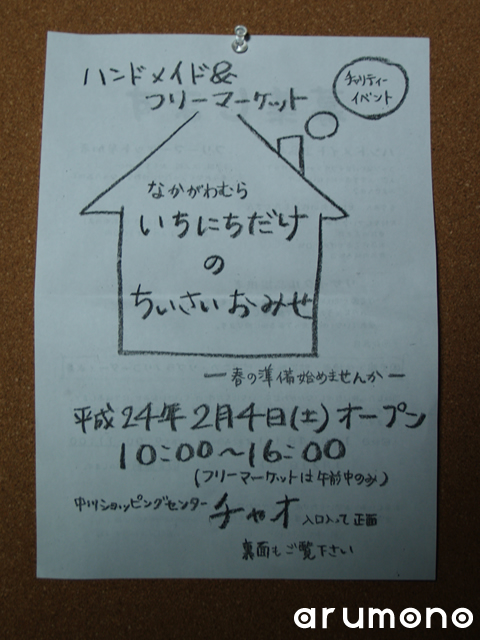 ハンドメイド&
フリーマーケット
チャリティー
イベント
なかがわむら
いちにちだけ
の
ちいさいおみせ
ー春の準備始めませんかー
平成24年2月4日(土)オープン
10:00～16:00
(フリーマーケットは午前中のみ)
中川ショッピングセンター チャオ 入口入って正面
裏面もご覧下さい
arumono